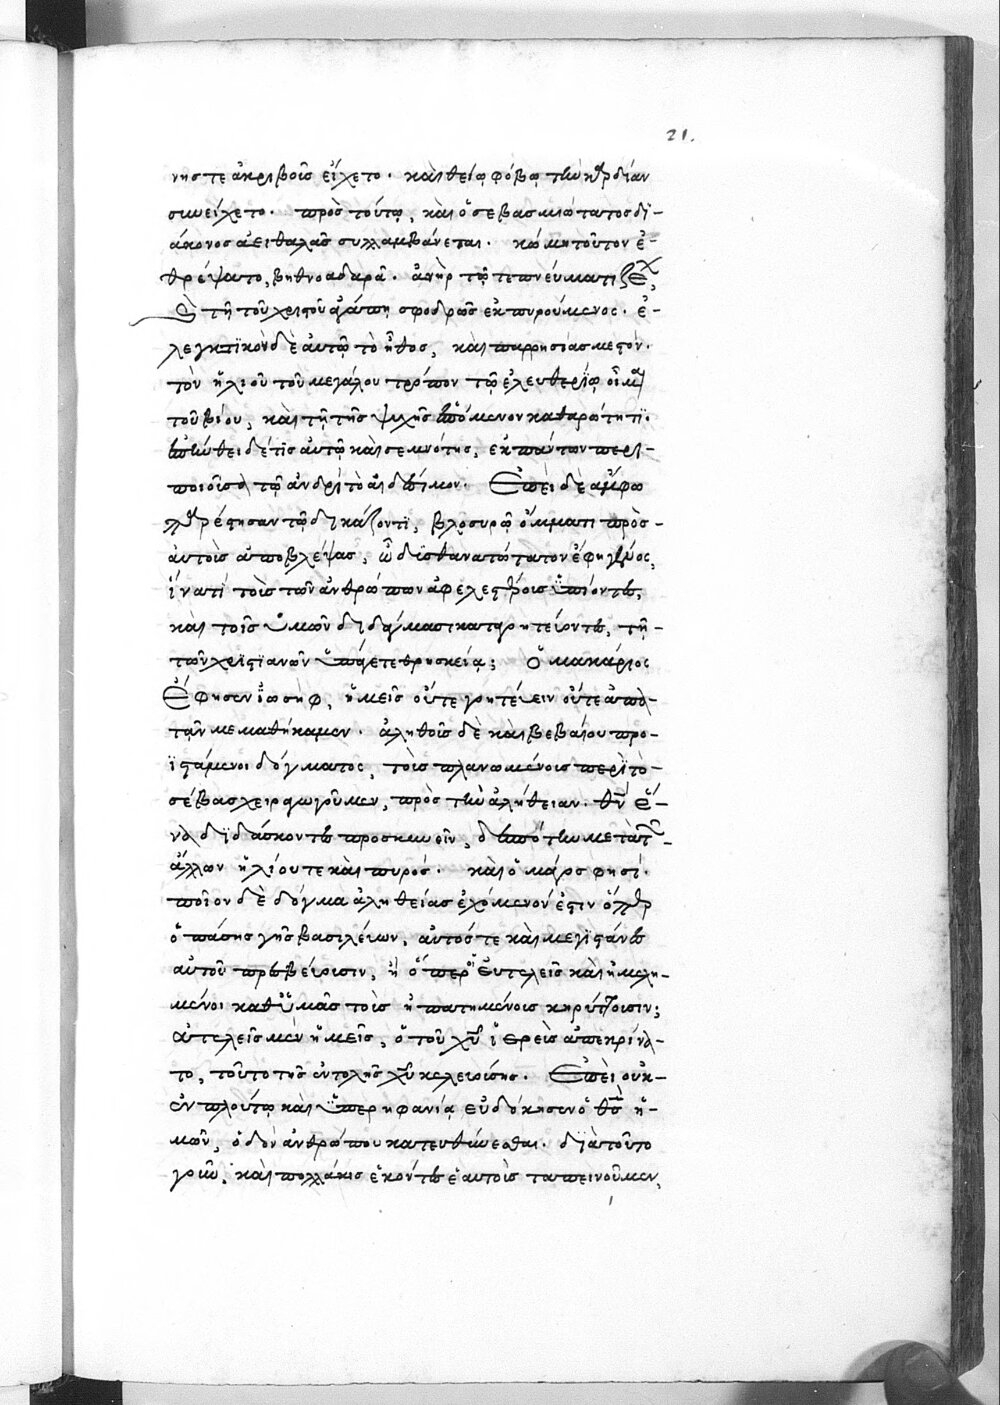 21.
νηστε ἀκριβοῦς εἴχετο· καὶ θείῳ φόβῳ τὴν καρδίαν
συνείχετο· πρὸς τούτῳ, καὶ ὁ σεβασμιώτατος δϊ-
άκονος ἀειθαλᾶς συλλαμβάνεται· κώμη τοῦτον ἐ-
θρέψατο, βηθνοαδαρᾶ· ἀνὴρ τῷ τε πνεύματι ζέ,
ὲ τῇ τοῦ χριστοῦ ἀγάπῃ σφοδρῶς ἐκπυρούμενος· ἐ-
λεγκτϊκὸν δὲ αὐτῷ τὸ ἦθος, καὶ παρρησίας μεστόν·
τὸν ἠλιοῦ τοῦ μεγάλου τρόπον τῷ ἐλευθερίῳ
τοῦ βίου, καὶ τῇ τῆς ψυχῆς ἑπόμενον καθαρότητϊ·
ἐπήνθει δέ τϊς αὐτῷ καὶ σεμνότης, ἐκ πάντων περι-
ποιοῦσα τῷ ἀνδρὶ τὸ αἰδέσιμον· Ἐπεὶ δὲ ἄμφω
παρέστησαν τῷ δικάζοντϊ, βλοσυρῷ ὄμματι πρὸς-
αὐτοὺς ἀποβλέψας, ὦ δϊσθανατώτατον ἔφη γένος,
ἵνατί τοὺς τῶν ἀνθρώπων ἀφελεστέρους ὑπϊόντες,
καὶ τοῖς ὑμῶν διδάγμασι καταγοητεύοντες, τῇ-
τῶν χριστϊανῶν ὑπάγετε θρησκείᾳ; Ὁ μακάριος
Ἔφησεν ἰωσὴφ, ἡμεῖς οὔτε γοητεύειν οὔτε ἀπα-
τᾶν μεμαθήκαμεν· ἀληθοῦς δὲ καὶ βεβαίου προ-
ϊστάμενοι δόγματος, τοὺς πλανωμένους περὶ τὸ-
σέβας χειραγωγοῦμεν, πρὸς τὴν ἀλήθειαν· θν ἕ-
να δϊδάσκοντες προσκυνεῖν, δεσπότην μετὰ τ
ἄλλων ἡλίου τε καὶ πυρός· καὶ ὁ μάγος φησί·
ποῖον δὲ δόγμα ἀληθείας ἐχόμενόν ἐστιν ὅπερ
ὁ πάσης γῆς βασιλεύων, αὐτός τε καὶ μεγϊστάνες
αὐτοῦ πρεσβεύουσιν, ἢ ὅπερ οἱ εὐτελεῖς καὶ ἠμελη-
μένοι καθ' ὑμᾶς τοῖς ἠπατημένοις κηρύττουσιν;
εὐτελεῖς μὲν ἡμεῖς, ὁ τοῦ χυ ἱερεὺς ἀπεκρίνα-
το, τοῦτο τῆς ἐντολῆς χυ κελευούσης· Ἐπεὶ οὐκ-
ἐν πλούτῳ καὶ ὑπερηφανίᾳ εὐδόκησεν ὁ θσ ἡ-
μῶν, ὁδὸν ἀνθρώπου κατευθύνεσθαι· διὰ τοῦτο
γοῦν, καὶ πολλάκις ἑκόντες ἑαυτοὺς ταπεινοῦμεν,